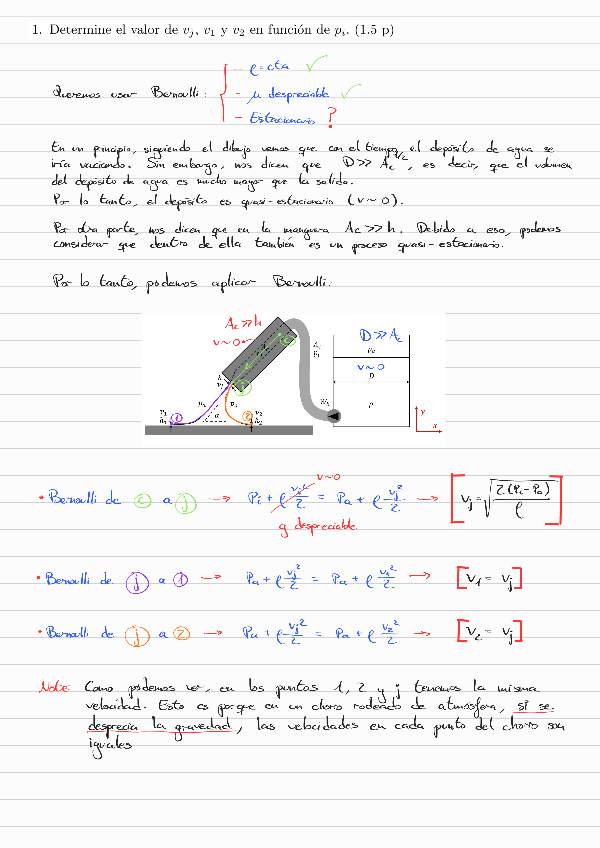 1. Determine el valor de v_j, v_1 y v_2 en función de p_i. (1.5 p)
Queremos usar Bernoulli:
- ρ = cta ✓
- μ despreciable ✓
- Estacionario ?
En un principio, siguiendo el dibujo vemos que con el tiempo, el depósito de agua se
iría vaciando. Sin embargo, nos dicen que D >> A_c^{1/2}, es decir, que el volumen
del depósito de agua es mucho mayor que la salida.
Por lo tanto, el depósito es quasi-estacionario (v ~ 0).
Por otra parte, nos dicen que en la manguera A_c >> h. Debido a eso, podemos
considerar que dentro de ella también es un proceso quasi-estacionario.
Por lo tanto, podemos aplicar Bernoulli.
A_c >> h
v ~ 0
D >> A_c
p_a
v ~ 0
D
ρ
p_a
p_a
α
v_1
h_1
v_2
h_2
1
2
y
x
• Bernoulli de c a j → P_i + ρ v_i²/2 = P_a + ρ v_j²/2 → [v_j = √(2(P_i - P_a)/ρ)]
v ~ 0
g despreciable
• Bernoulli de j a 1 → P_a + ρ v_j²/2 = P_a + ρ v_1²/2 → [v_1 = v_j]
• Bernoulli de j a 2 → P_a + ρ v_j²/2 = P_a + ρ v_2²/2 → [v_2 = v_j]
Nota: Como podemos ver, en los puntos 1, 2 y j tenemos la misma
velocidad. Esto es porque en un chorro rodeado de atmosfera, si se
desprecia la gravedad, las velocidades en cada punto del chorro son
iguales